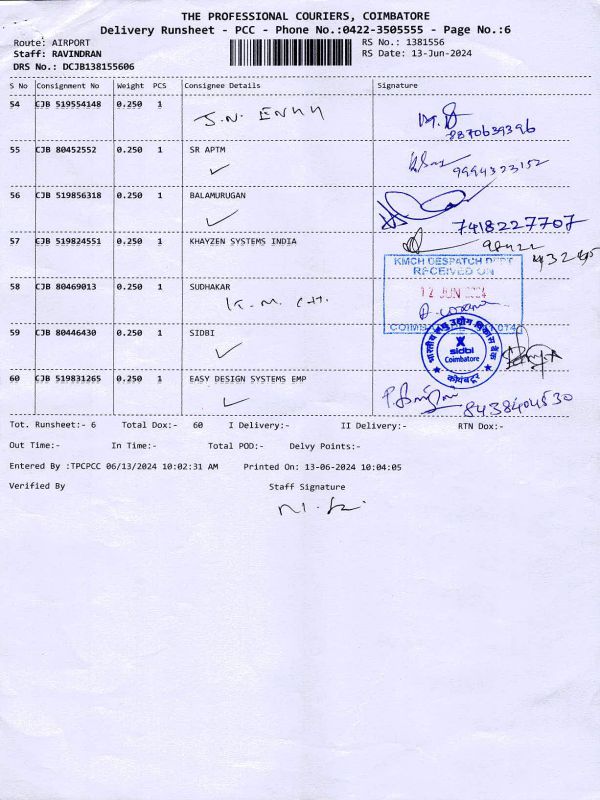 THE PROFESSIONAL COURIERS, COIMBATORE
Delivery Runsheet - PCC - Phone No.:0422-3505555 - Page No.:6
Route: AIRPORT RS No.: 1381556
Staff: RAVINDRAN RS Date: 13-Jun-2024
DRS No.: DCJB138155606
S No Consignment No Weight PCS Consignee Details Signature
54 CJB 519554148 0.250 1
8870639396
55 CJB 80452552 0.250 1 SR APTM
9994323152
56 CJB 519856318 0.250 1 BALAMURUGAN
7418227707
57 CJB 519824551 0.250 1 KHAYZEN SYSTEMS INDIA
KMCH DESPATCH DEPT
RECEIVED ON
58 CJB 80469013 0.250 1 SUDHAKAR
12 JUN 2024
K.M. CH.
59 CJB 80446430 0.250 1 SIDBI
भारतीय लघु उद्योग विकास बैंक
sidbi
Coimbatore
कोयंबटूर
60 CJB 519831265 0.250 1 EASY DESIGN SYSTEMS EMP
8438404530
Tot. Runsheet:- 6 Total Dox:- 60 I Delivery:- II Delivery:- RTN Dox:-
Out Time:- In Time:- Total POD:- Delvy Points:-
Entered By :TPCPCC 06/13/2024 10:02:31 AM Printed On: 13-06-2024 10:04:05
Verified By Staff Signature